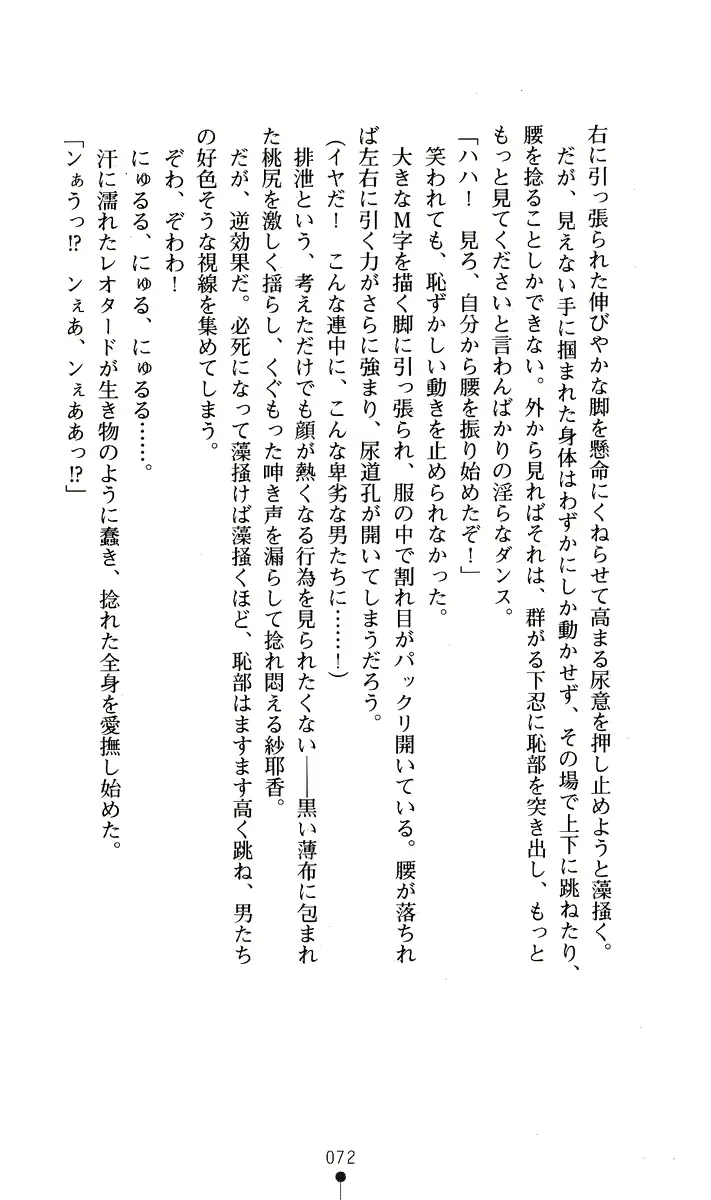 右に引っ張られた伸びやかな脚を懸命にくねらせて高まる尿意を押し止めようと藻掻く。
だが、見えない手に掴まれた身体はわずかにしか動かせず、その場で上下に跳ねたり、
腰を捻ることしかできない。外から見ればそれは、群がる下忍に恥部を突き出し、もっと
もっと見てくださいと言わんばかりの淫らなダンス。
「ハハ！　見ろ、自分から腰を振り始めたぞ！」
笑われても、恥ずかしい動きを止められなかった。
大きなM字を描く脚に引っ張られ、服の中で割れ目がパックリ開いている。腰が落ちれ
ば左右に引く力がさらに強まり、尿道孔が開いてしまうだろう。
（イヤだ！　こんな連中に、こんな卑劣な男たちに……！）
排泄という、考えただけでも顔が熱くなる行為を見られたくない――黒い薄布に包まれ
た桃尻を激しく揺らし、くぐもった呻き声を漏らして捻れ悶える紗耶香。
だが、逆効果だ。必死になって藻掻けば藻掻くほど、恥部はますます高く跳ね、男たち
の好色そうな視線を集めてしまう。
ぞわ、ぞわわ！
にゅるる、にゅる、にゅるる……。
汗に濡れたレオタードが生き物のように蠢き、捻れた全身を愛撫し始めた。
「ンぁうっ!?　ンぇあ、ンぇああっ!?」
072